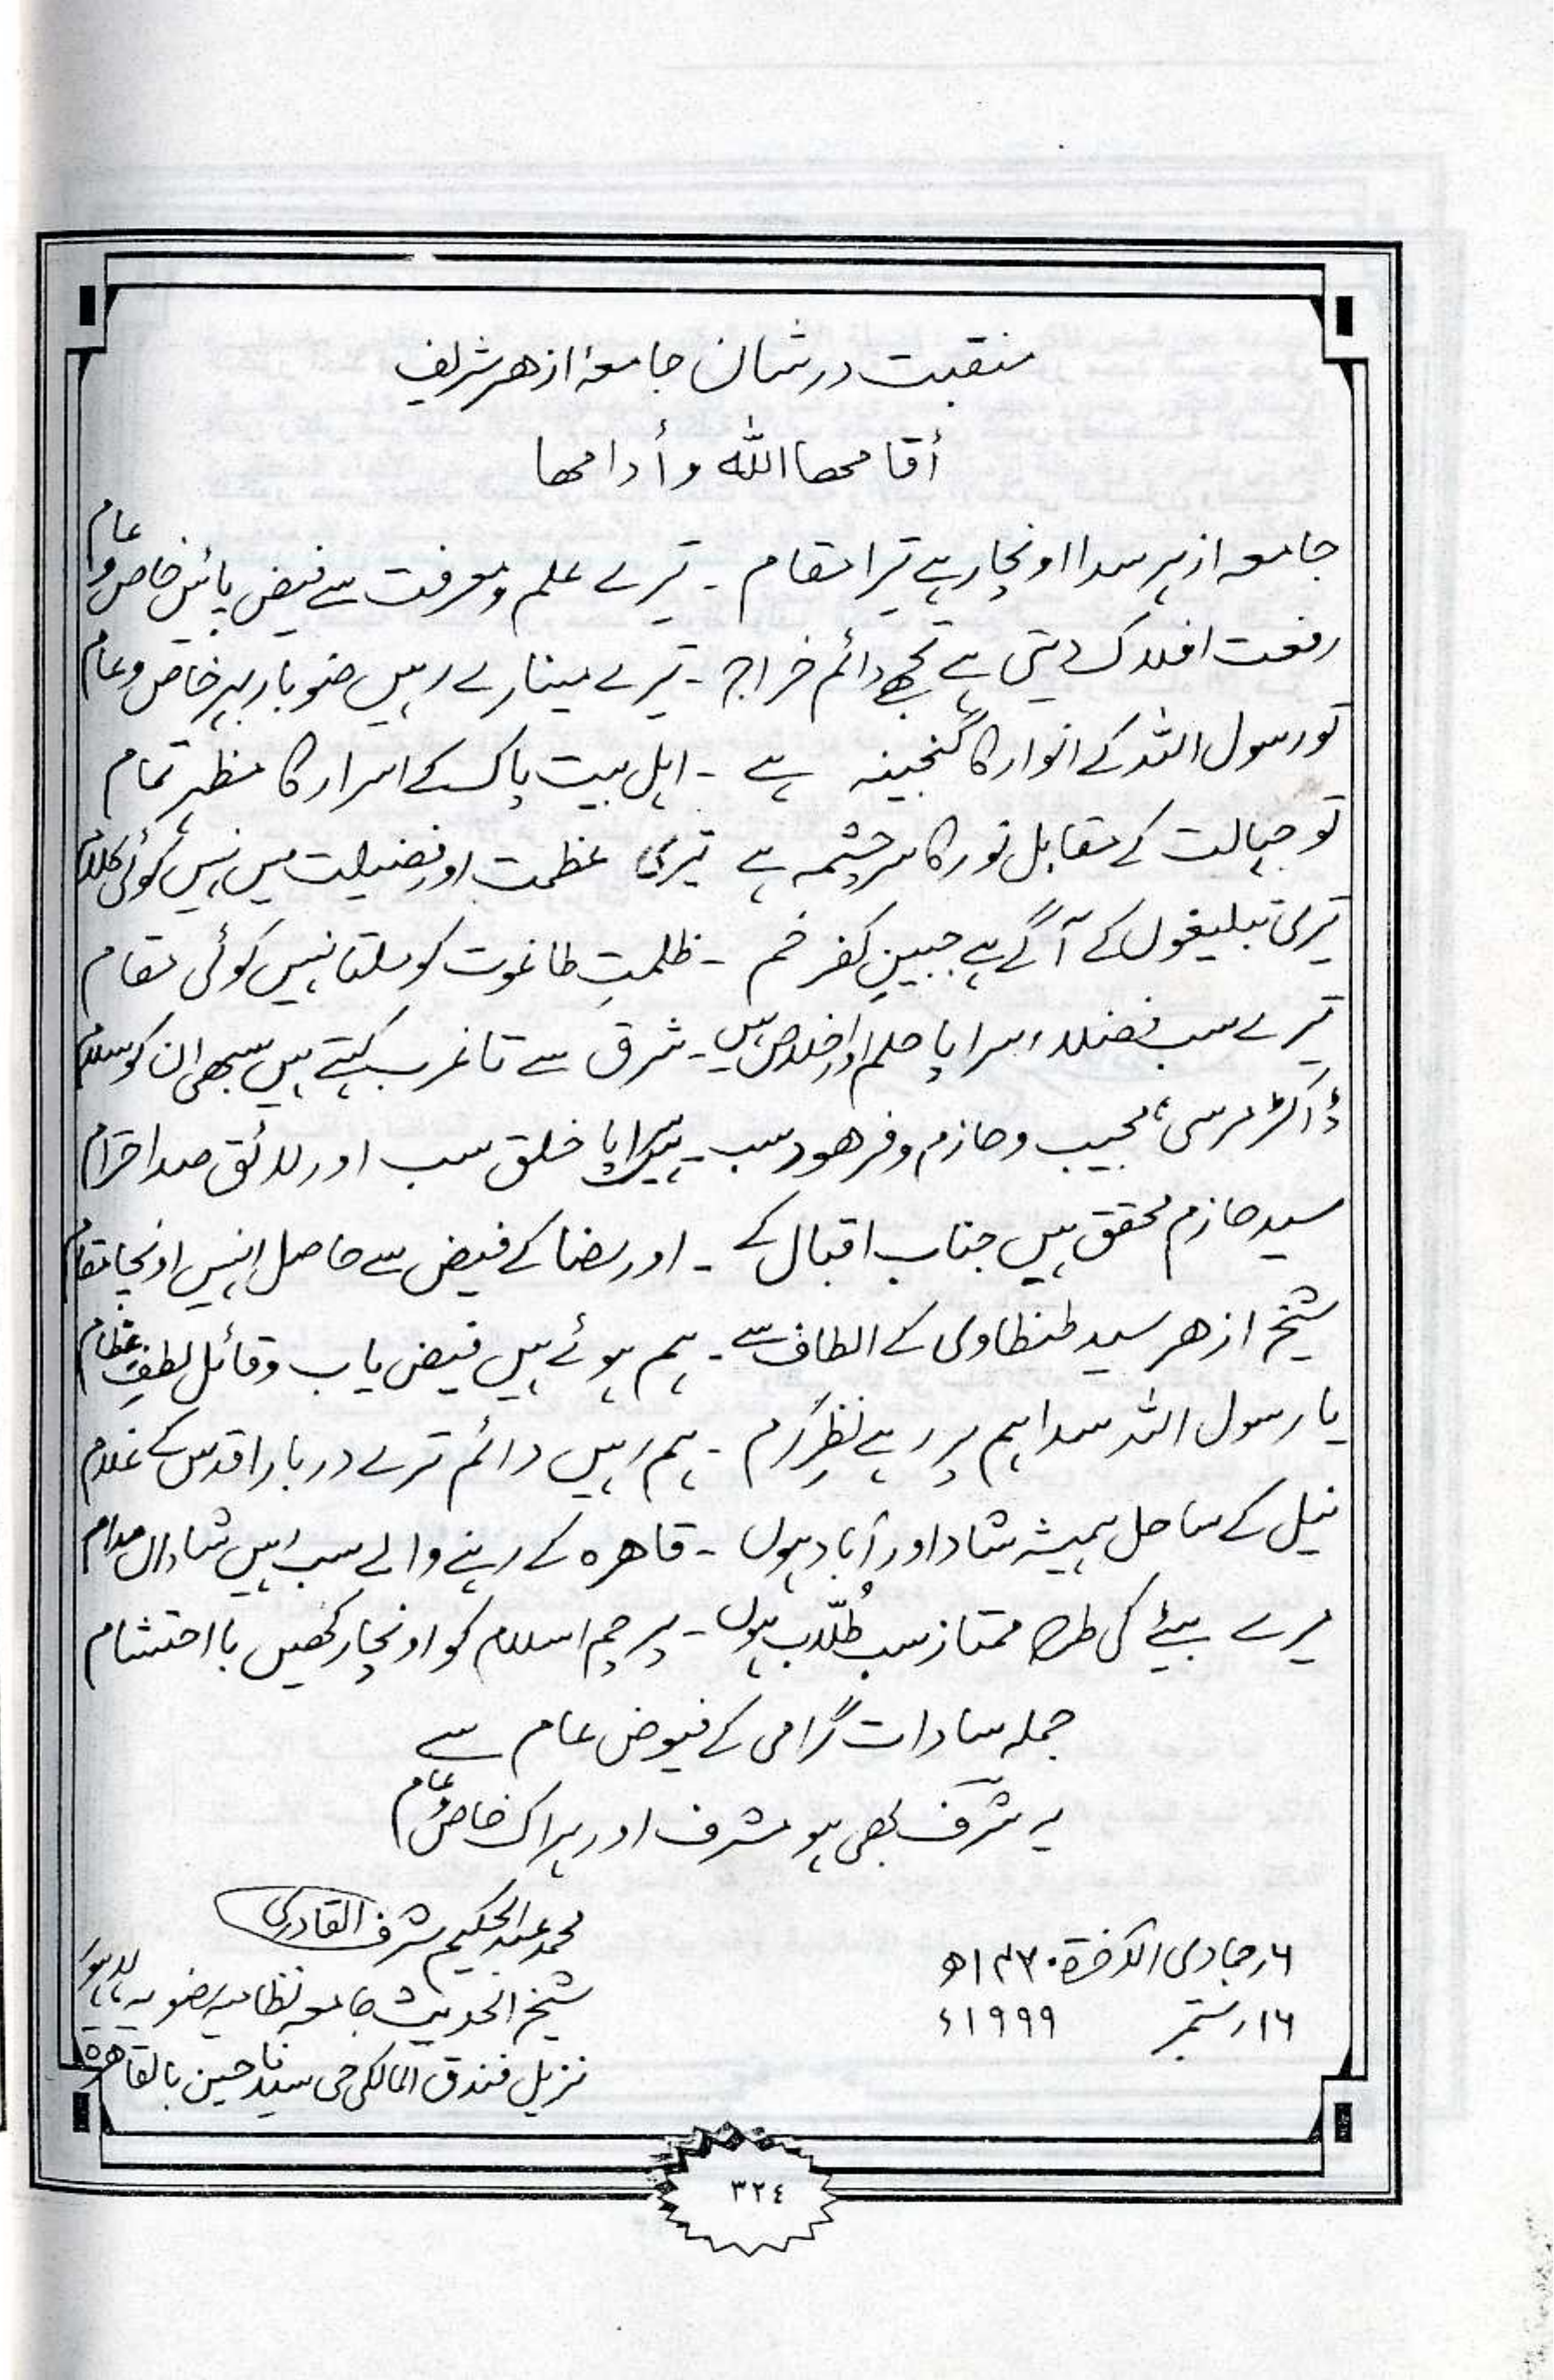 منقبت در شان جامعۂ ازھر شریف
أقامھا اللہ وأدامھا
جامعہ ازہر سدا اونچا رہے تیرا مقام ۔ تیرے علم و معرفت سے فیض پائیں خاص و عام
رفعت افلاک دیتی ہے تجھے دائم خراج ۔ تیرے مینارے رہیں ضوبار بہر خاص و عام
تو رسول اللہ کے انوار کا گنجینہ ہے ۔ اہل بیت پاک کے اسرار کا مظہر تمام
تو جہالت کے مقابل نور کا سرچشمہ ہے تیری عظمت اور فضیلت میں نہیں کوئی کلام
تیری تبلیغوں کے آگے ہے جبینِ کفر خم ۔ ظلمتِ طاغوت کو ملتا نہیں کوئی مقام
تیرے سب فضلاء سراپا حلم اور اخلاص ہیں ۔ شرق سے تا غرب کہتے ہیں سبھی ان کو سلام
ڈاکٹر مرسی، نجیب و حازم و فرھود سب ۔ ہیں سراپا خلق سب اور لائق صد احترام
سید حازم محقق ہیں جناب اقبال کے ۔ اور رضا کے فیض سے حاصل انہیں اونچا مقام
شیخ ازھر سید طنطاوی کے الطاف سے ۔ ہم ہوئے ہیں فیض یاب و قائل لطفِ عظام
یا رسول اللہ سدا ہم پر رہے نظرِ کرم ۔ ہم رہیں دائم ترے دربار اقدس کے غلام
نیل کے ساحل ہمیشہ شاد اور آباد ہوں ۔ قاھرہ کے رہنے والے سب رہیں شاداں مدام
میرے بیٹے کی طرح ممتاز سب طُلّاب ہوں ۔ پرچم اسلام کو اونچا رکھیں با احتشام
جملہ سادات گرامی کے فیوض عام سے
یہ شرفؔ بھی ہو مشرف اور ہر اک خاص و عام
محمد عبد الحکیم شرف القادری
۶ جمادی الآخرۃ ۱۴۲۰ھ
شیخ الحدیث جامعہ نظامیہ رضویہ لاہور
۱۶ ستمبر ۱۹۹۹ء
نزیل فندق المالکی حی سیدنا حسین بالقاھرۃ
٣٢٤